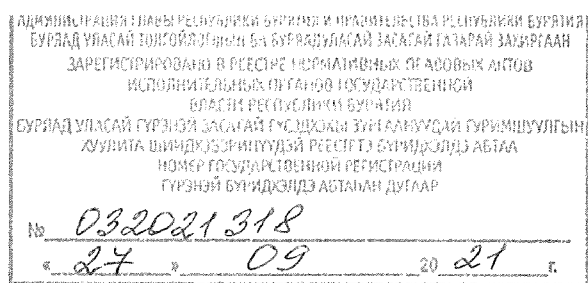 АДМИНИСТРАЦИЯ ГЛАВЫ РЕСПУБЛИКИ БУРЯТИЯ И ПРАВИТЕЛЬСТВА РЕСПУБЛИКИ БУРЯТИЯ
БУРЯАД УЛАСАЙ ТОЛГОЙЛОГШЫН БА БУРЯАД УЛАСАЙ ЗАСАГАЙ ГАЗАРАЙ ЗАХИРГААН
ЗАРЕГИСТРИРОВАНО В РЕЕСТРЕ НОРМАТИВНЫХ ПРАВОВЫХ АКТОВ
ИСПОЛНИТЕЛЬНЫХ ОРГАНОВ ГОСУДАРСТВЕННОЙ
ВЛАСТИ РЕСПУБЛИКИ БУРЯТИЯ
БУРЯАД УЛАСАЙ ГҮРЭНЭЙ ЗАСАГАЙ ГҮЙСЭДХЭХЫ ЗУРГААНУУДАЙ ГУРИМШУУЛГЫН
ХУУЛИТА ШИИДХЭБЭРИНҮҮДЭЙ РЕЕСТРТЭ БҮРИДХЭЛДЭ АБТАА
НОМЕР ГОСУДАРСТВЕННОЙ РЕГИСТРАЦИИ
ГҮРЭНЭЙ БҮРИДХЭЛДЭ АБТАҺАН ДУГААР
№ 032021318
« 27 » 09 20 21 г.